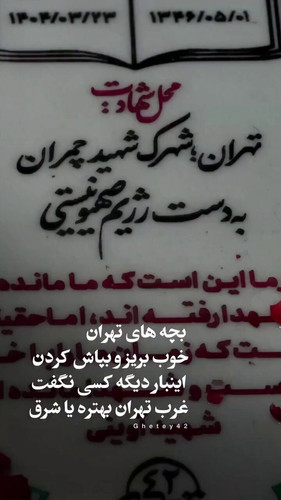 ۱۳۴۶/۰۵/۰۱
۱۴۰۴/۰۳/۲۳
محل شهادت:
تهران؛ شهرک شهید چمران
به دست رژیم صهیونیستی
ما این است که ما مانده
رفته اند، اما حقی
بچه های تهران
خوب بریز و بپاش کردن
اینبار دیگه کسی نگفت
غرب تهران بهتره یا شرق
Ghetey42
شهید آوینی
۴۲